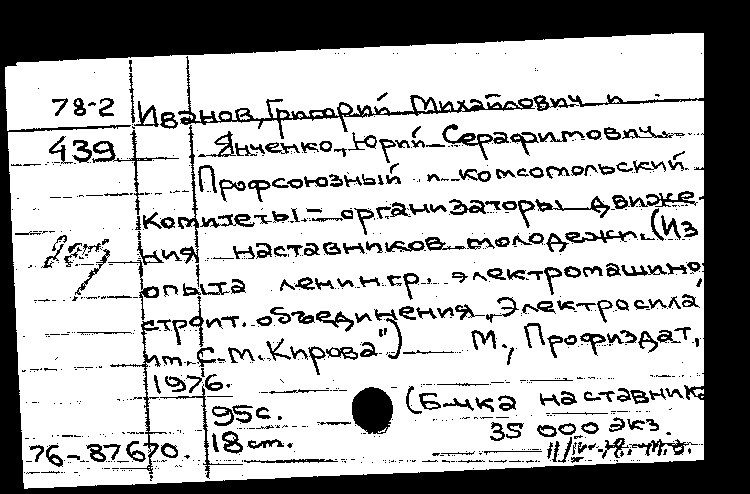 78-2 Иванов, Григорий Михайлович и
439 Янченко, Юрий Серафимович.
Профсоюзный и комсомольский
комитеты – организаторы движе-
ния наставников молодежи. (Из
опыта ленингр. электромашино-
строит. объединения „Электросила"
им. С. М. Кирова") М., Профиздат,
1976.
95 с. (Б-чка наставника
18 cm. 35 000 экз.
76-87670.